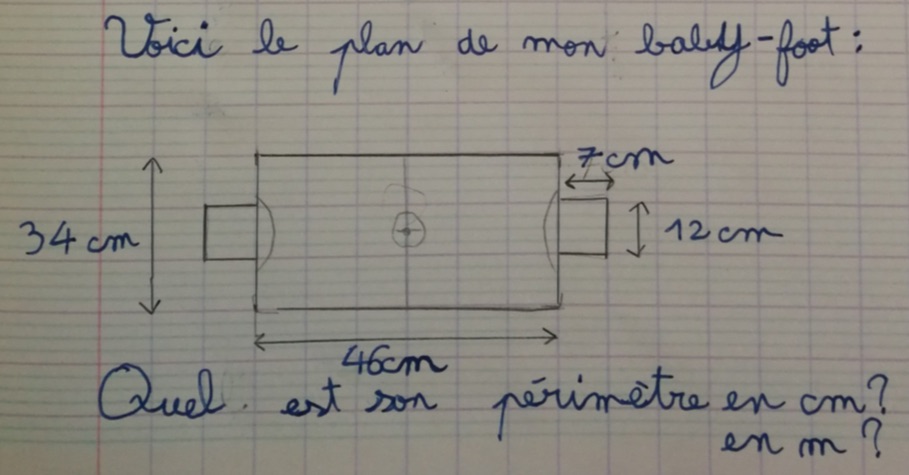 Voici le plan de mon baby-foot :
7cm
34 cm
12 cm
46cm
Quel est son périmètre en cm?
en m?